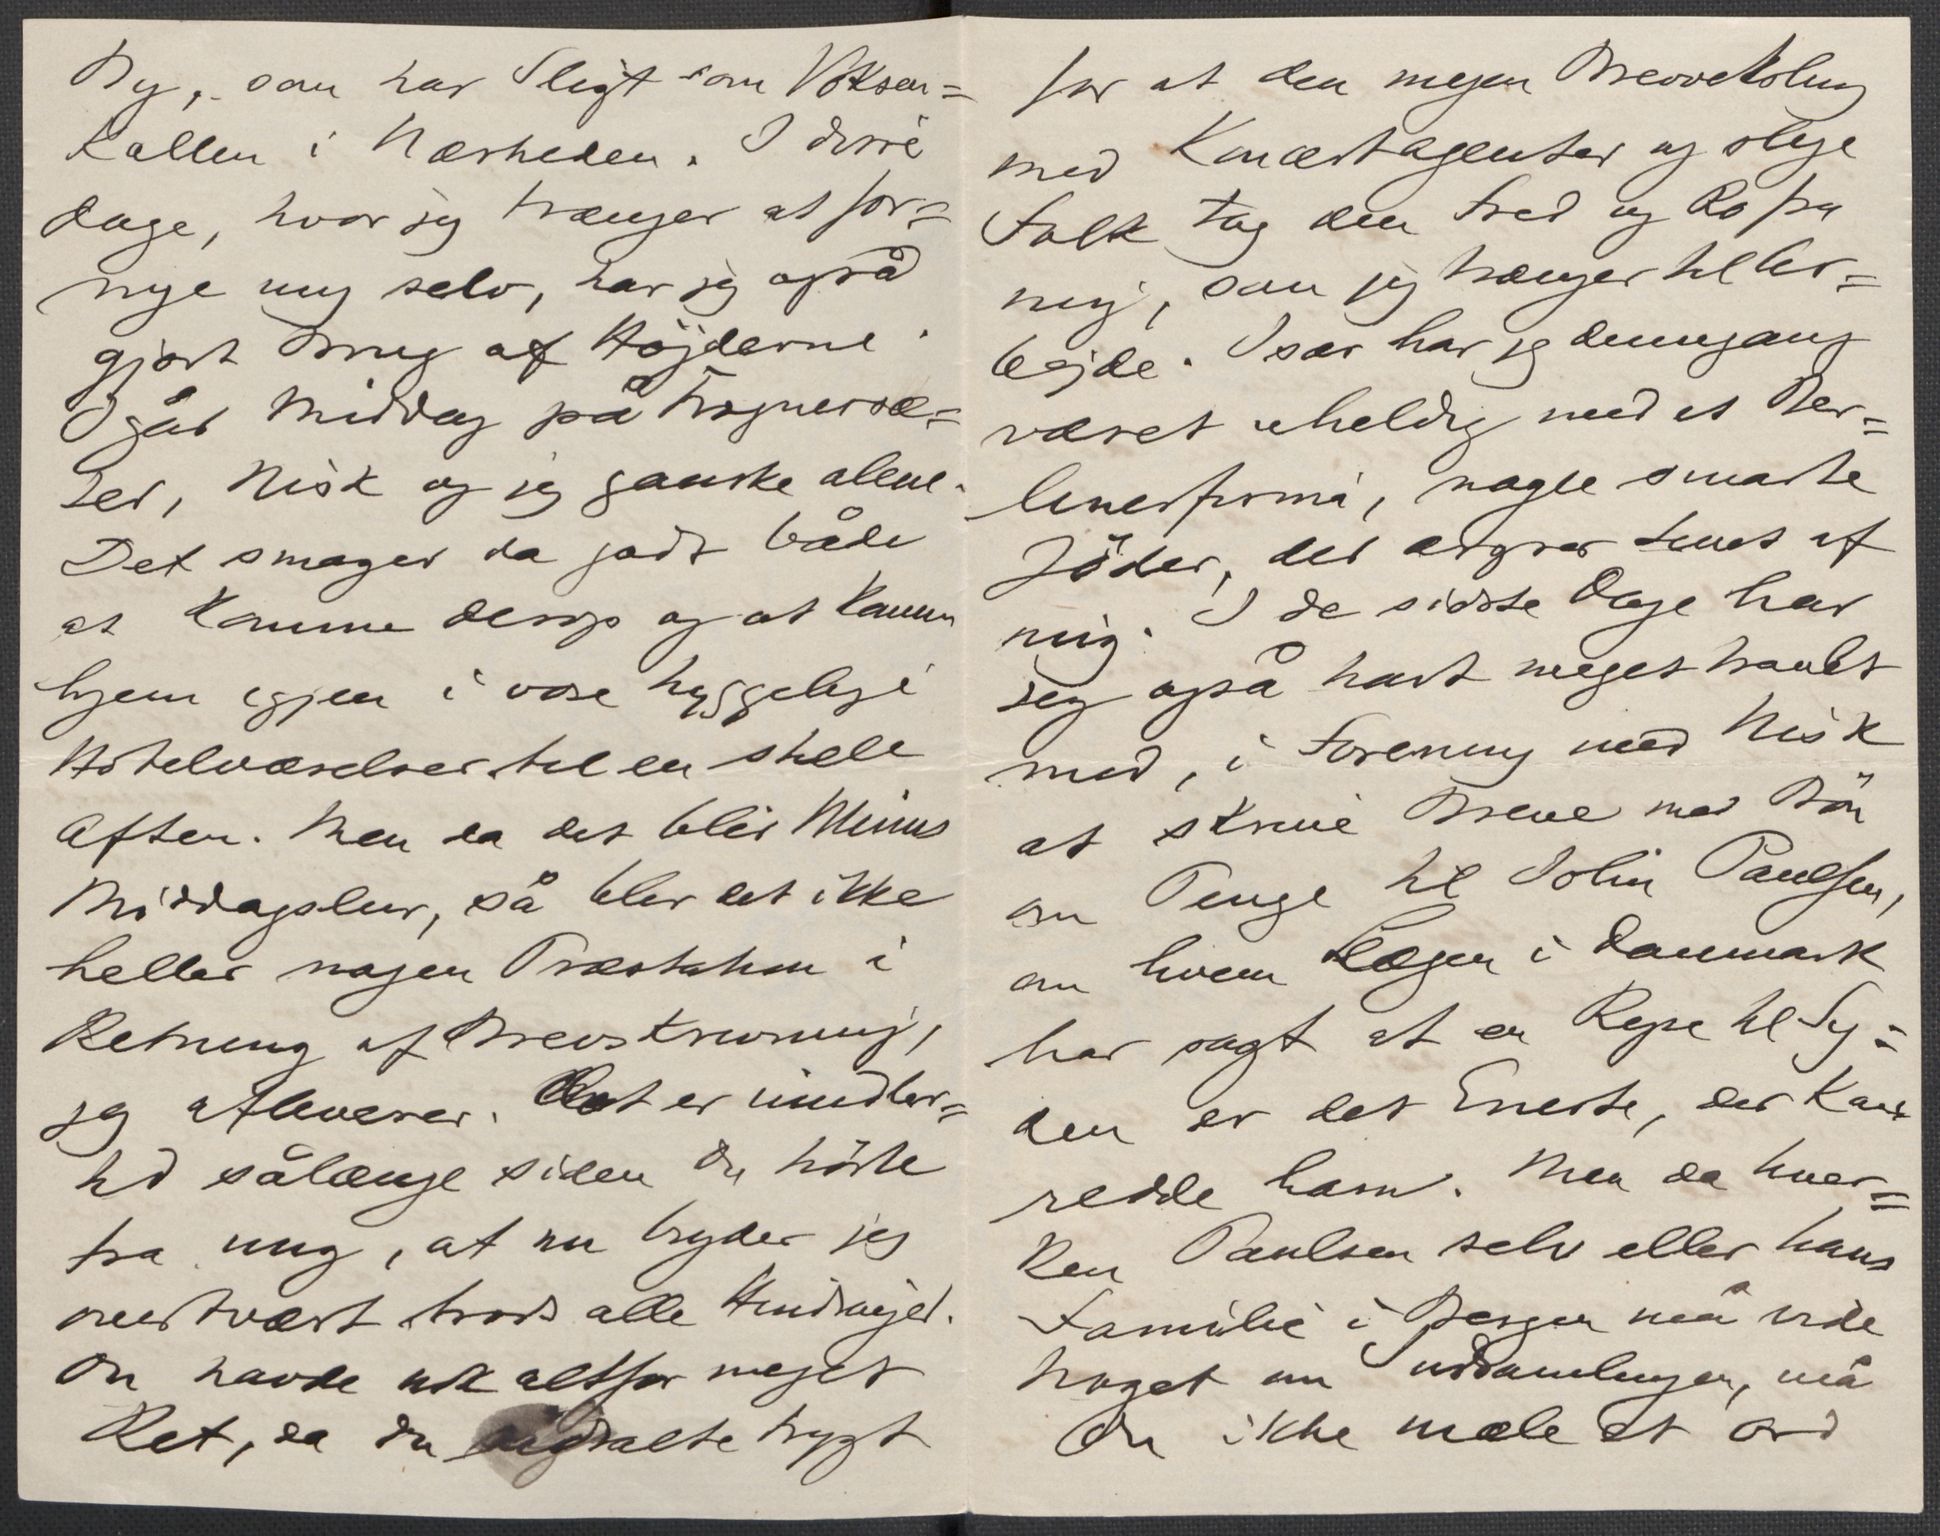 By, som har Sligt som Voksen=
kollen i Nærheden. I disse
Dage, hvor jeg trænger at for=
nye mig selv, har jeg også
gjort Brug af Höjderne.
Igår Middag på Frognersæ=
ter, Nisk og jeg ganske alene.
Det smager da godt både
at komme derop og at komme
hjem igjen i vore hyggelige
Hotelværelser til en stille
Aften. Men da det blir Minus
Middagslur, så blir det ikke
heller nogen Præstation i
Retning af Brevskrivning,
jeg afleverer. Det er imidler=
tid sålænge siden Du hörte
fra mig, at nu bryder jeg
overtvært trods alle Hindringer.
Du havde nok altfor meget
Ret, da Du udtalte Frygt
for at den megen Brevveksling
med Koncertagenter og slige
Folk tog den Fred og Ro fra
mig, som jeg trænger til Ar=
bejde. Især har jeg dennegang
været uheldig med et Ber=
linerfirma, nogle smarte
Jöder, der ærgrer Livet af
mig. I de sidste Dage har
jeg også havt meget travlt
med, i Forening med Nisk
at skrive Breve med Bön
om Penge til John Paulsen,
om hvem Lægen i Danmark
har sagt at en Rejse til Sy=
den er det Eneste, der kan
redde ham. Men da hver=
ken Paulsen selv eller hans
Familie i Bergen må vide
Noget om Indsamlingen, må
Du ikke mæle et Ord